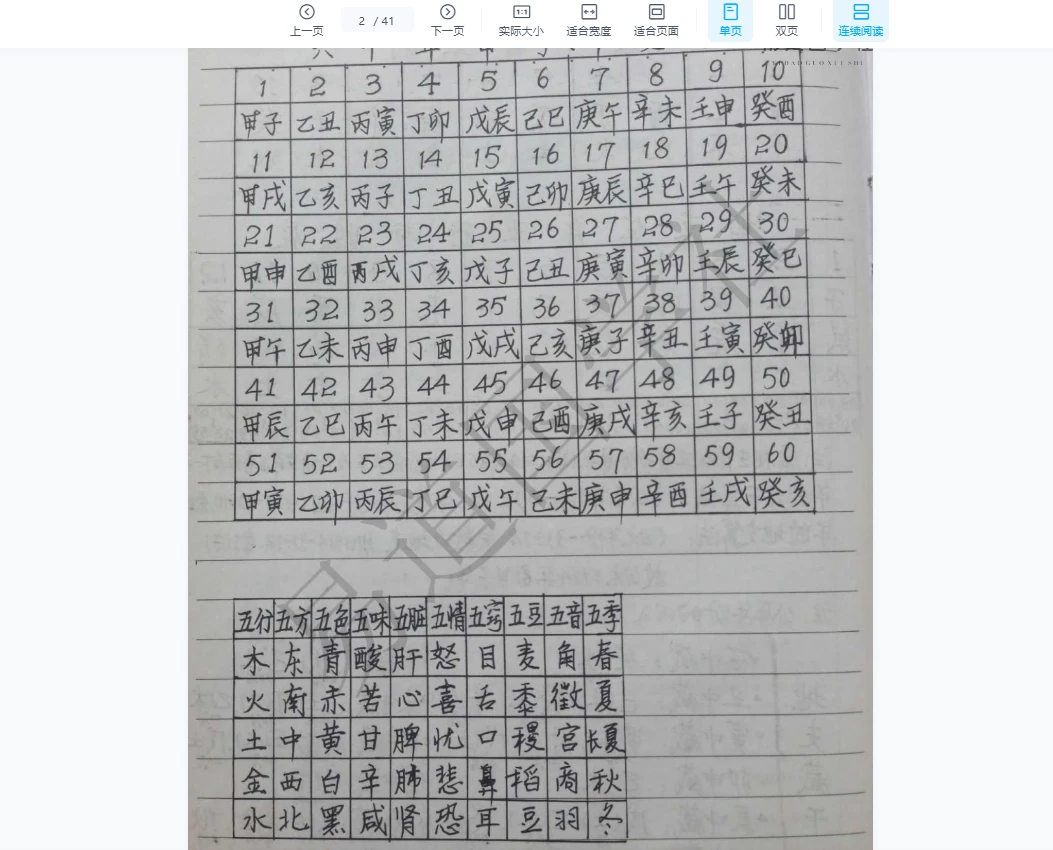 上一页 2 / 41 下一页 1:1 实际大小 适合宽度 适合页面 单页 双页 连续阅读
1 2 3 4 5 6 7 8 9 10
甲子 乙丑 丙寅 丁卯 戊辰 己巳 庚午 辛未 壬申 癸酉
11 12 13 14 15 16 17 18 19 20
甲戌 乙亥 丙子 丁丑 戊寅 己卯 庚辰 辛巳 壬午 癸未
21 22 23 24 25 26 27 28 29 30
甲申 乙酉 丙戌 丁亥 戊子 己丑 庚寅 辛卯 壬辰 癸巳
31 32 33 34 35 36 37 38 39 40
甲午 乙未 丙申 丁酉 戊戌 己亥 庚子 辛丑 壬寅 癸卯
41 42 43 44 45 46 47 48 49 50
甲辰 乙巳 丙午 丁未 戊申 己酉 庚戌 辛亥 壬子 癸丑
51 52 53 54 55 56 57 58 59 60
甲寅 乙卯 丙辰 丁巳 戊午 己未 庚申 辛酉 壬戌 癸亥
五行 五方 五色 五味 五脏 五情 五窍 五豆 五音 五季
木 东 青 酸 肝 怒 目 麦 角 春
火 南 赤 苦 心 喜 舌 黍 徵 夏
土 中 黄 甘 脾 忧 口 稷 宫 长夏
金 西 白 辛 肺 悲 鼻 稻 商 秋
水 北 黑 咸 肾 恐 耳 豆 羽 冬